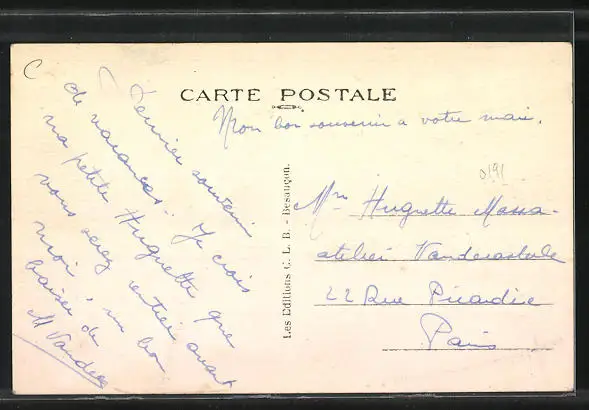 CARTE POSTALE
Mon bon souvenir a votre mari.
Dernier souvenir
de vacances. Je crois
ma petite Huguette que
vous serez rentrée avant
moi, un bon
baiser de
M Vandeca
Les Editions C. L. B. - Besançon.
0191
Mme Huguette Massa-
atelier Vandecastele
22 Rue Picardie
Paris